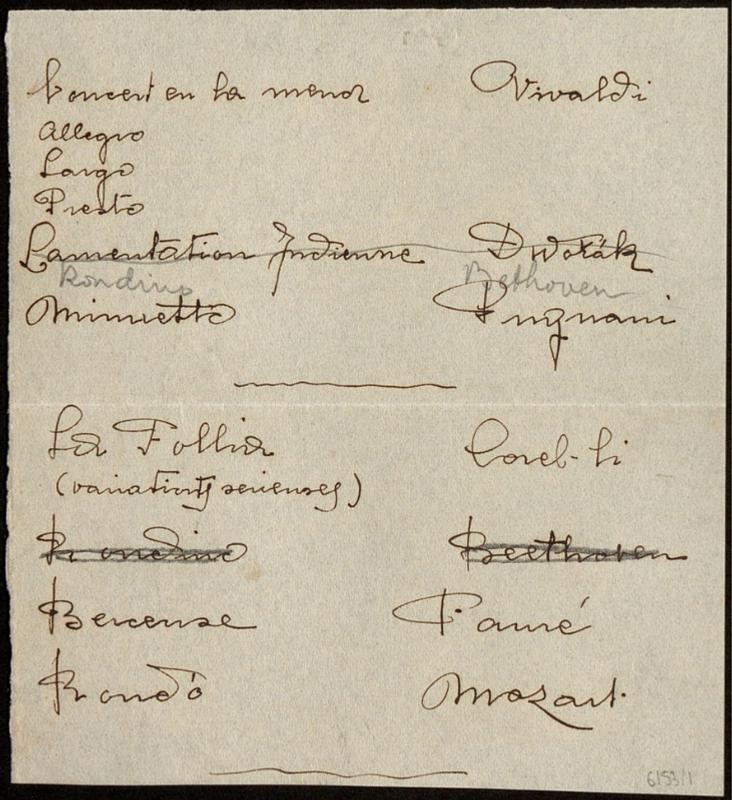 Concert en la menor Vivaldi
Allegro
Largo
Presto
Lamentation Indienne Dvořák
Rondino Beethoven
Minuetto Pugnani
La Follia Corel-li
(variations serieuses)
Rondino Beethoven
Berceuse Fauré
Rondó Mozart.
6153/1